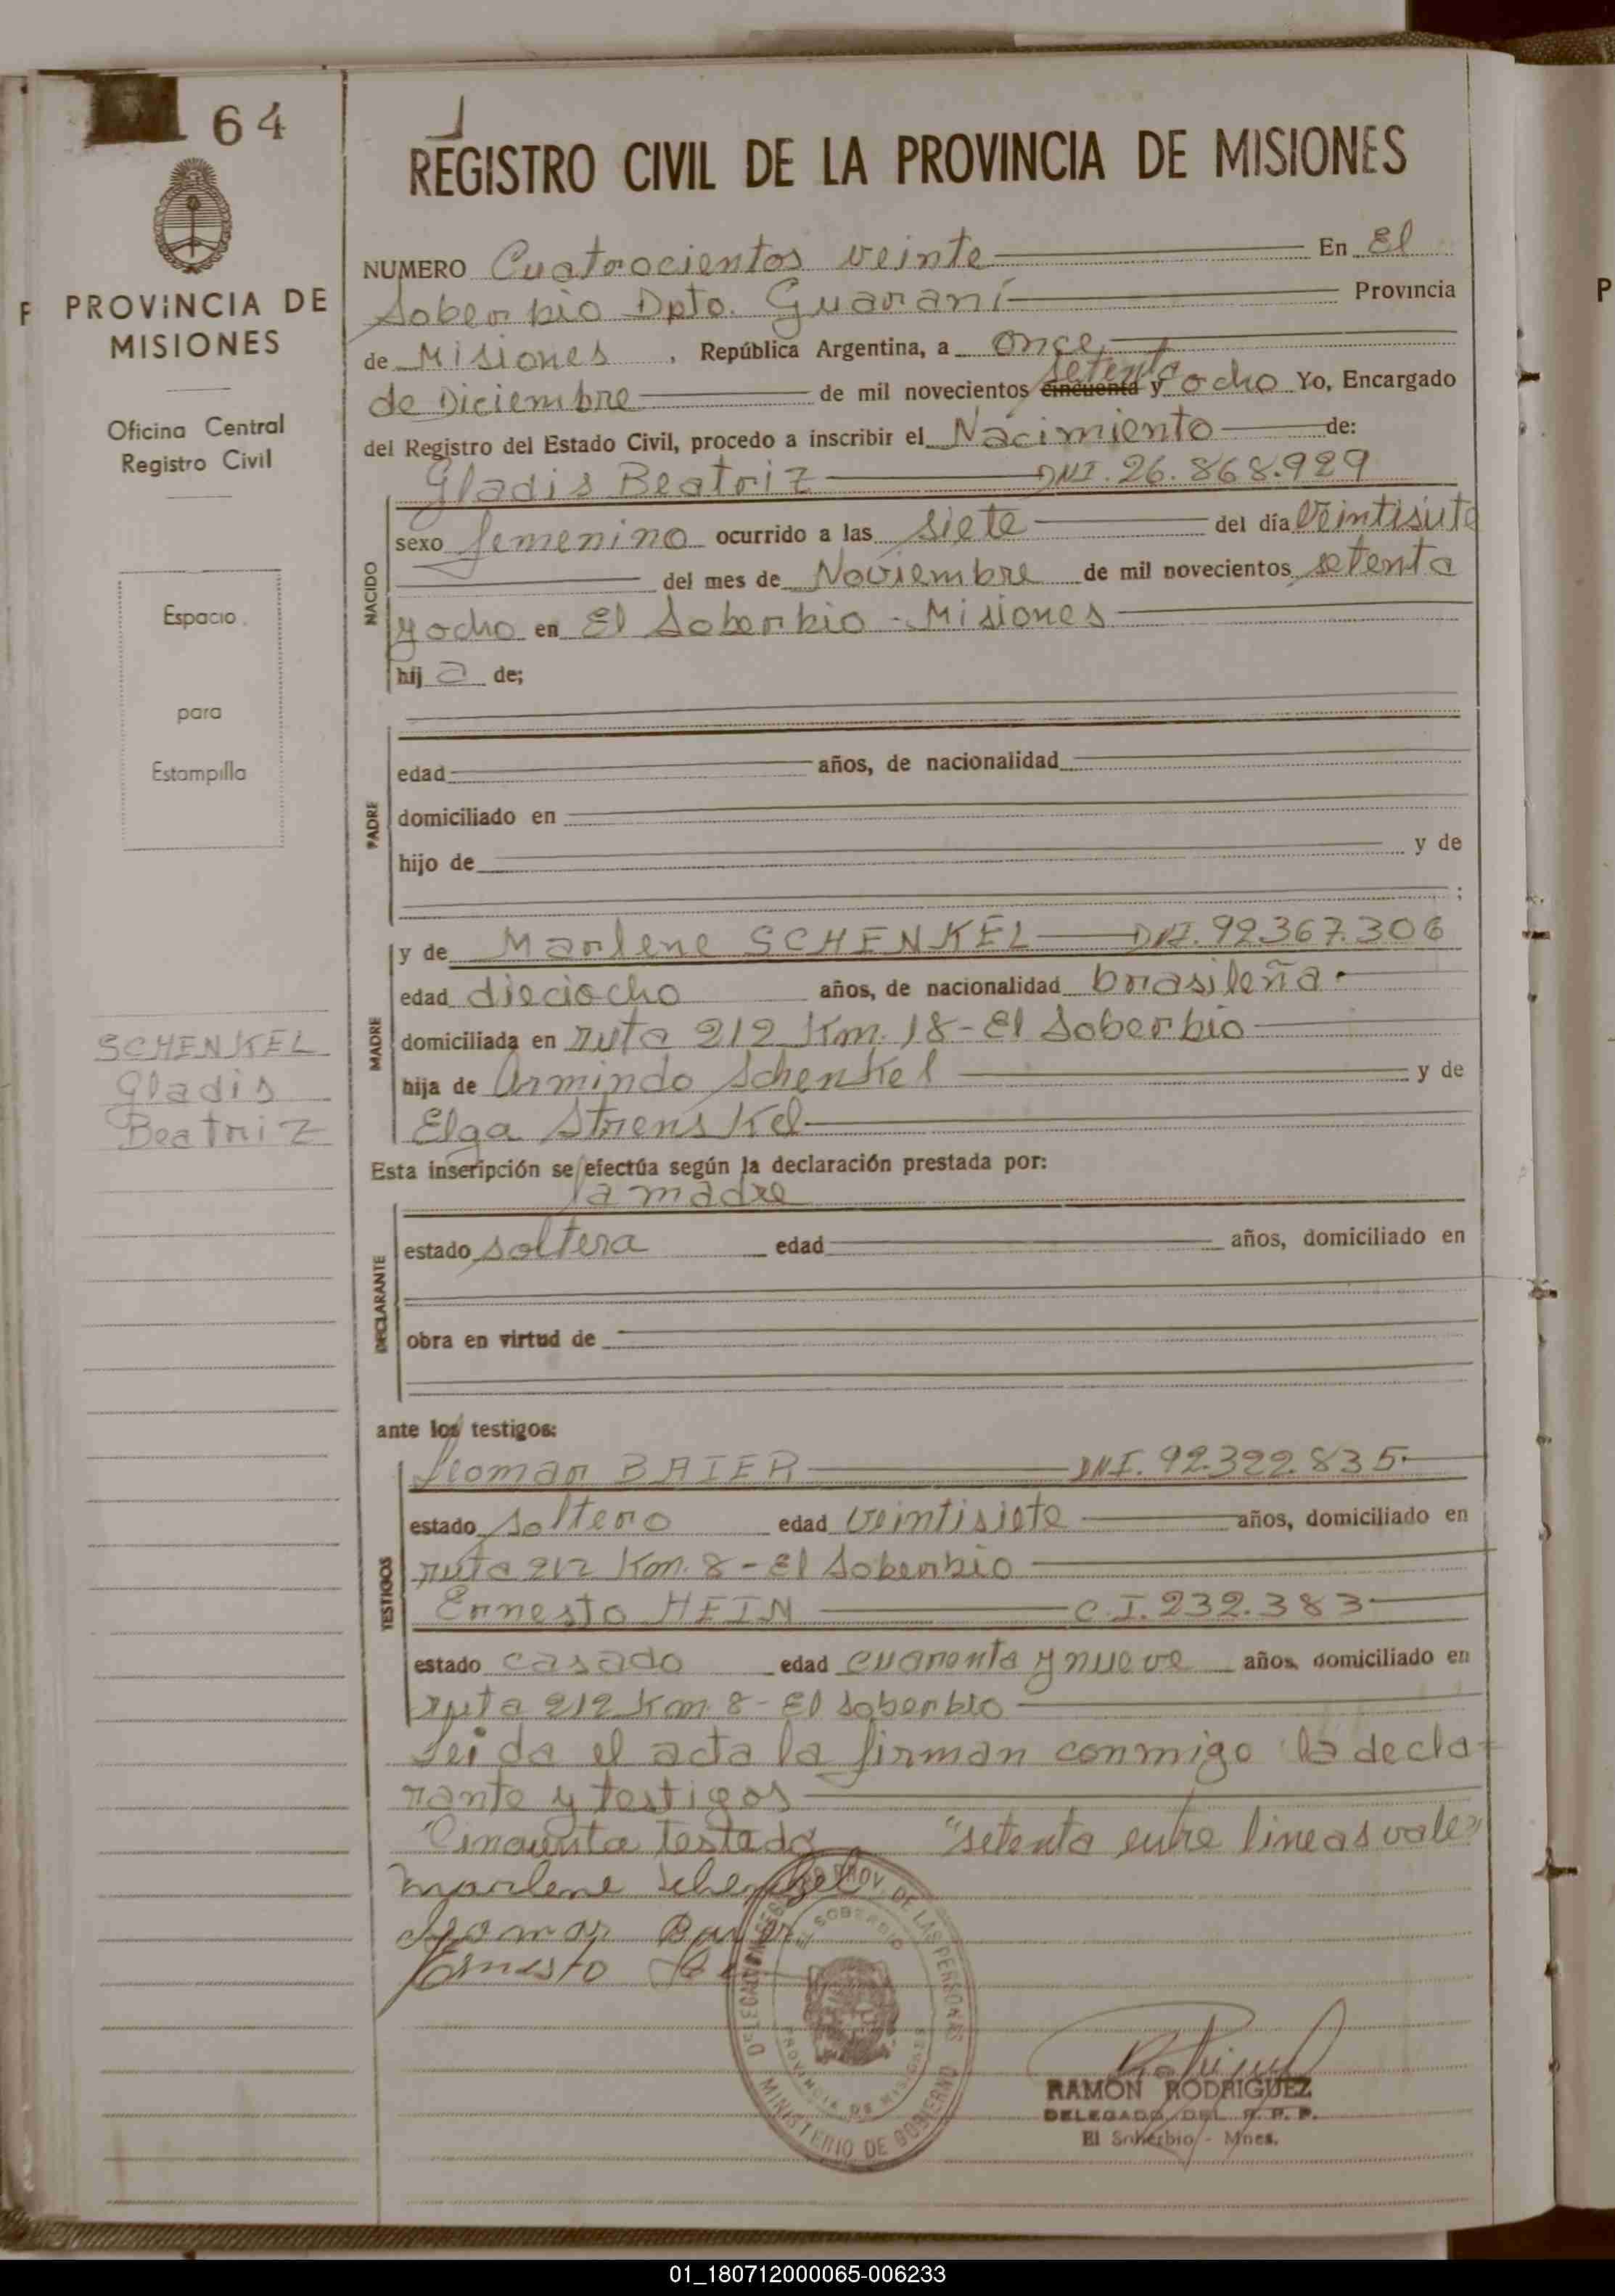 64
REGISTRO CIVIL DE LA PROVINCIA DE MISIONES
PROVINCIA DE
MISIONES
Oficina Central
Registro Civil
Espacio
para
Estampilla
SCHENKEL
Gladis
Beatriz
NUMERO Cuatrocientos veinte En El
Soberbio Dpto. Guaraní Provincia
de Misiones, República Argentina, a once
de Diciembre de mil novecientos cincuenta setenta y ocho Yo, Encargado
del Registro del Estado Civil, procedo a inscribir el Nacimiento de:
Gladis Beatriz DNI. 26.868.929
NACIDO
sexo femenino ocurrido a las siete del día Veintisiete
del mes de Noviembre de mil novecientos setenta
y ocho en El Soberbio - Misiones
hij a de;
PADRE
edad años, de nacionalidad
domiciliado en
hijo de y de
;
MADRE
y de Marlene SCHENKEL DNI. 92.367.306
edad dieciocho años, de nacionalidad brasileña.
domiciliada en ruta 212 Km. 18 - El Soberbio
hija de Armindo Schenkel y de
Elga Strenskel
Esta inscripción se efectúa según la declaración prestada por:
la madre
DECLARANTE
estado soltera edad años, domiciliado en
obra en virtud de
ante los testigos:
TESTIGOS
BAIER DNI. 92.322.835.
estado soltero edad veintisiete años, domiciliado en
ruta 212 Km. 8 - El Soberbio
Ernesto HEIN C.I. 232.383
estado casado edad cuarenta y nueve años, domiciliado en
ruta 212 Km. 8 - El Soberbio
Leida el acta la firman conmigo la decla-
rante y testigos
Cincuenta testado "setenta entre lineas vale"
Marlene Schenkel
Ernesto
PROV. DE LAS PERSONAS
EL SOBERBIO
PROVINCIA DE MISIONES
MINISTERIO DE GOBIERNO
RAMON RODRIGUEZ
DELEGADO DEL R. P. P.
El Soberbio - Mnes.
01_180712000065-006233